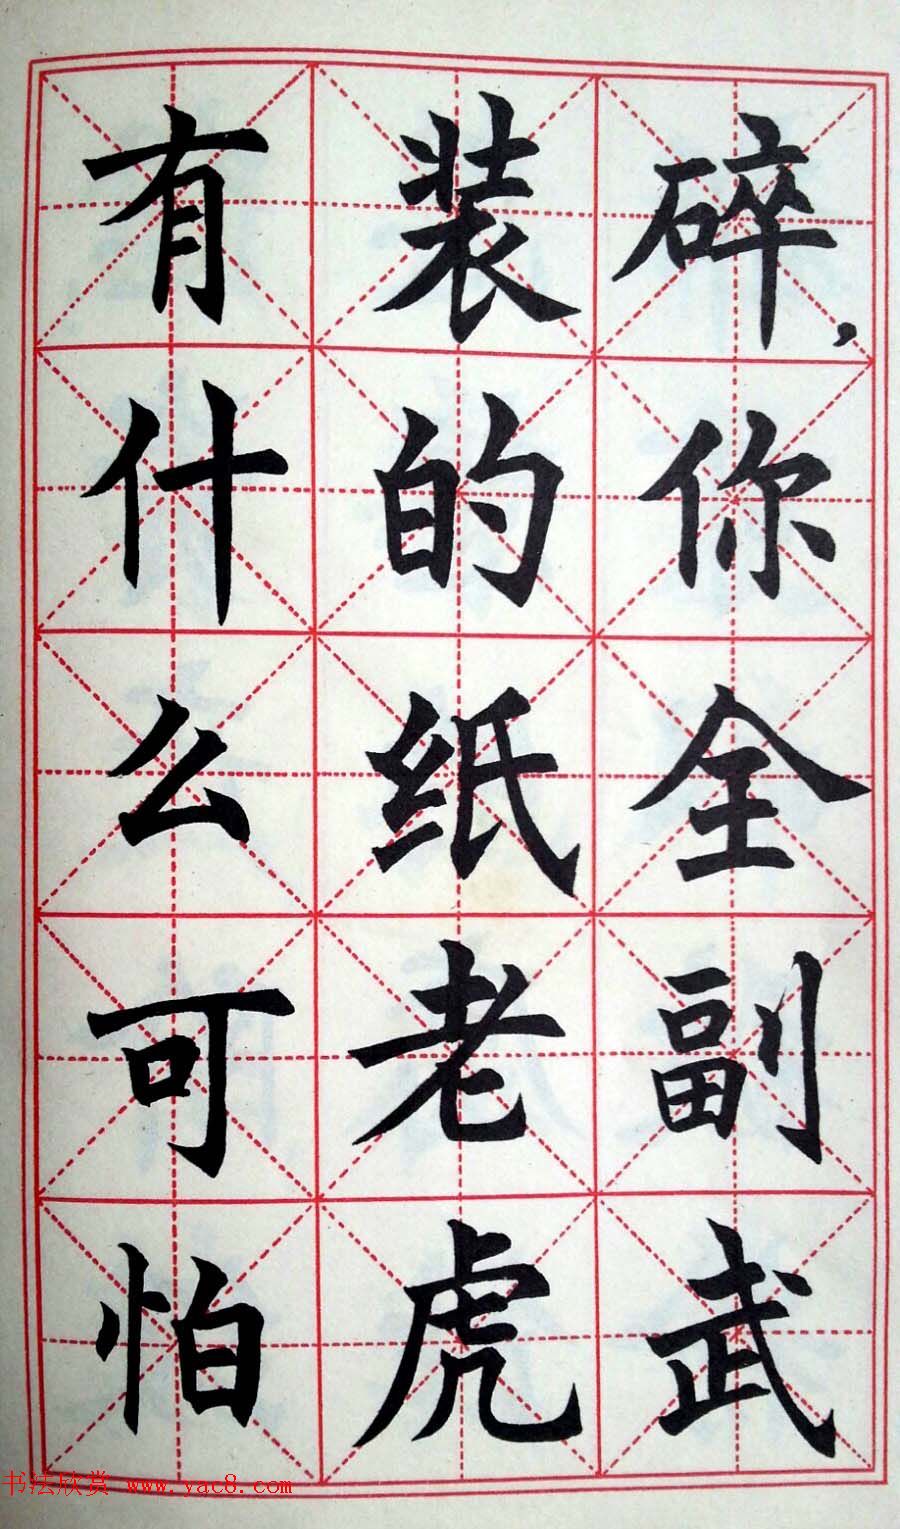 碎，你全副武
装的纸老虎
有什么可怕
书法欣赏 www.yac8.com